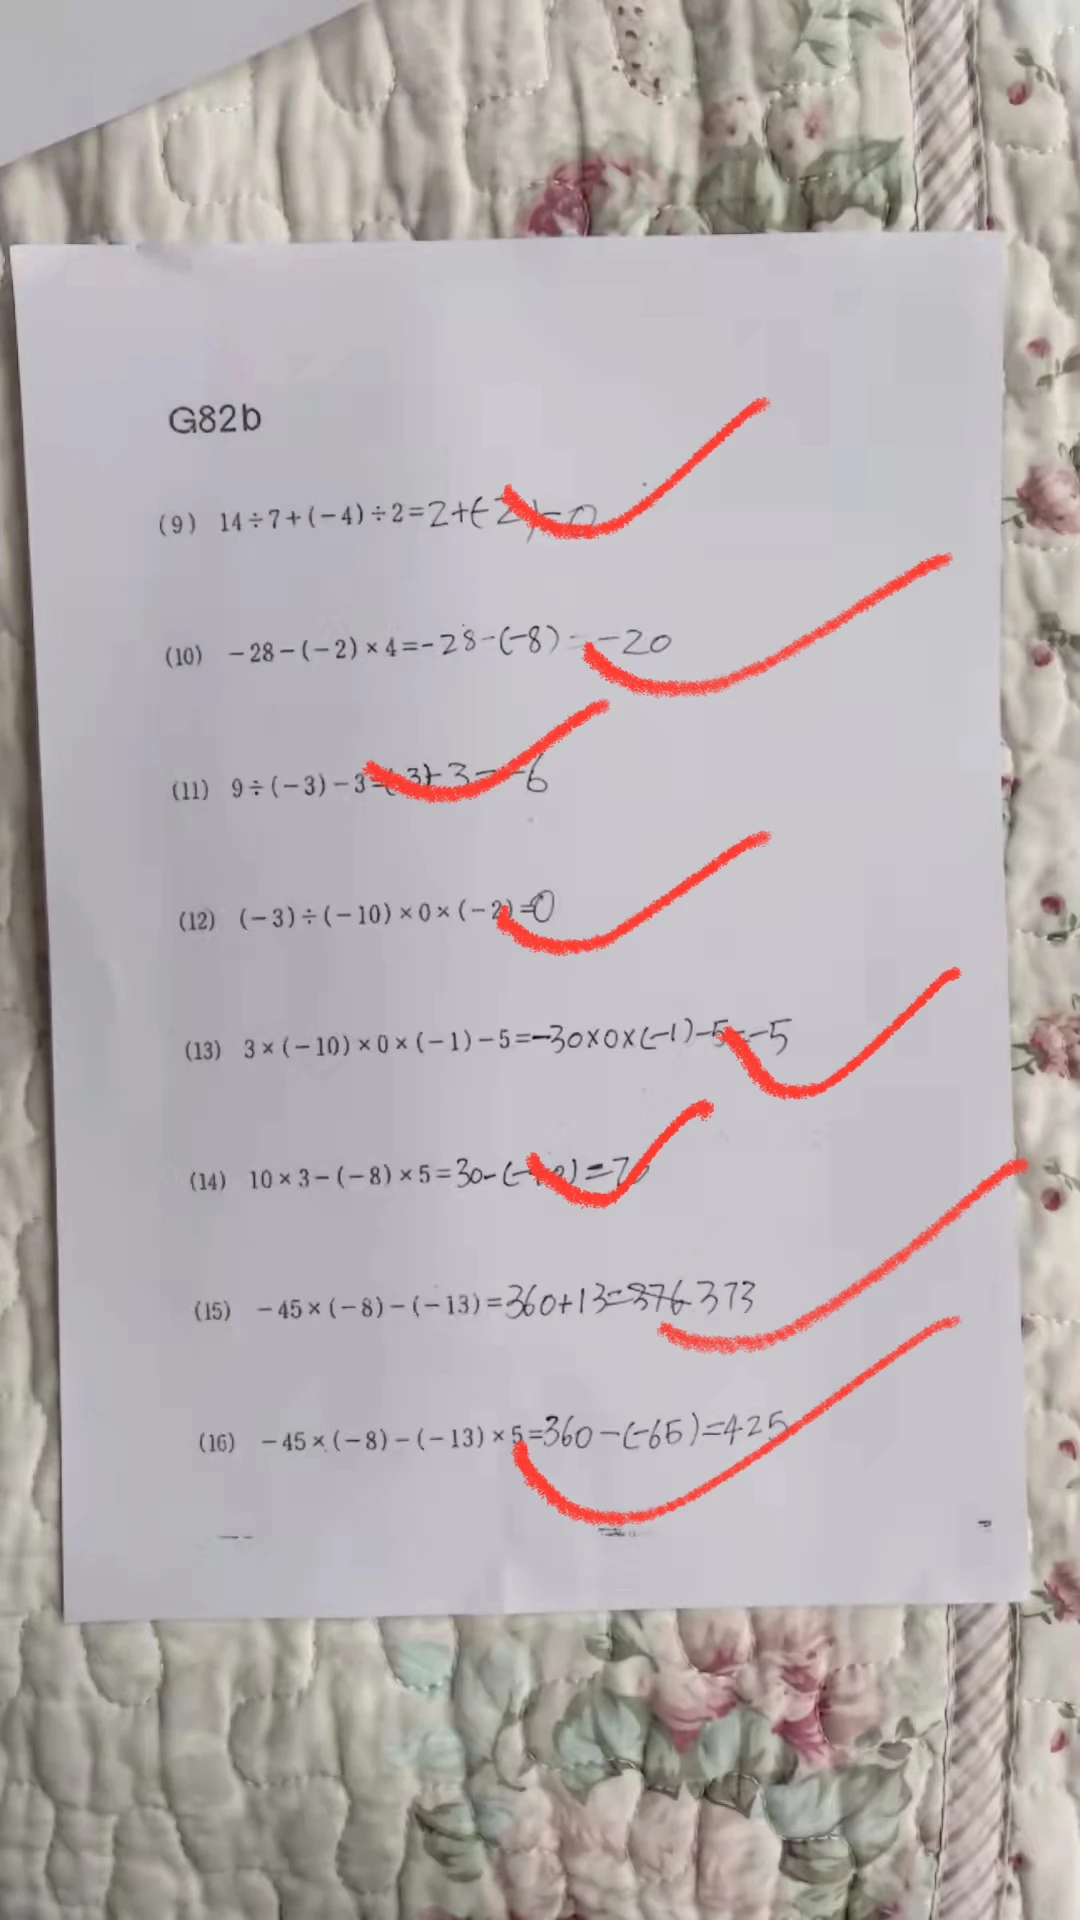 G82b
(9) 14÷7+(-4)÷2=2+(-2)=0
(10) -28-(-2)×4=-28-(-8)=-20
(11) 9÷(-3)-3=(-3)-3=-6
(12) (-3)÷(-10)×0×(-2)=0
(13) 3×(-10)×0×(-1)-5=-30×0×(-1)-5=-5
(14) 10×3-(-8)×5=30-(-40)=70
(15) -45×(-8)-(-13)=360+13=376 373
(16) -45×(-8)-(-13)×5=360-(-65)=425